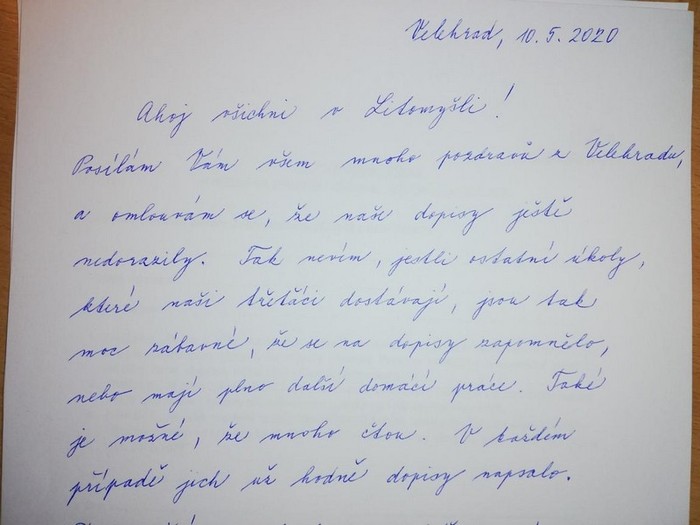 Velehrad, 10. 5. 2020
Ahoj všichni v Litomyšli!
Posílám Vám všem mnoho pozdravů z Velehradu,
a omlouvám se, že naše dopisy ještě
nedorazily. Tak nevím, jestli ostatní úkoly,
které naši třeťáci dostávají, jsou tak
moc zábavné, že se na dopisy zapomnělo,
nebo mají plno další domácí práce. Také
je možné, že mnoho čtou. V každém
případě jich už hodně dopisy napsalo.